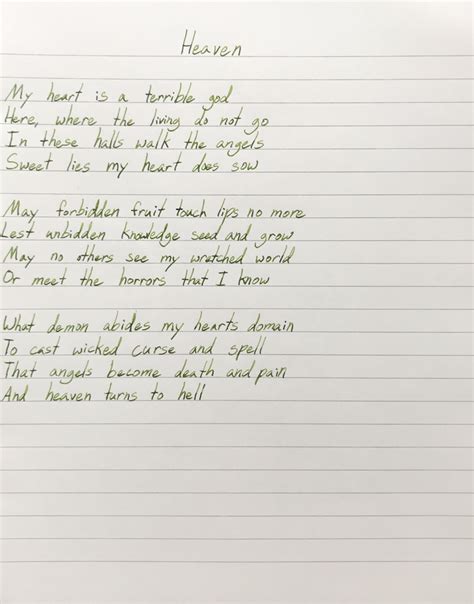 Heaven
My heart is a terrible god
Here, where the living do not go
In these halls walk the angels
Sweet lies my heart does sow
May forbidden fruit touch lips no more
Lest unbidden knowledge seed and grow
May no others see my wretched world
Or meet the horrors that I know
What demon abides my hearts domain
To cast wicked curse and spell
That angels become death and pain
And heaven turns to hell